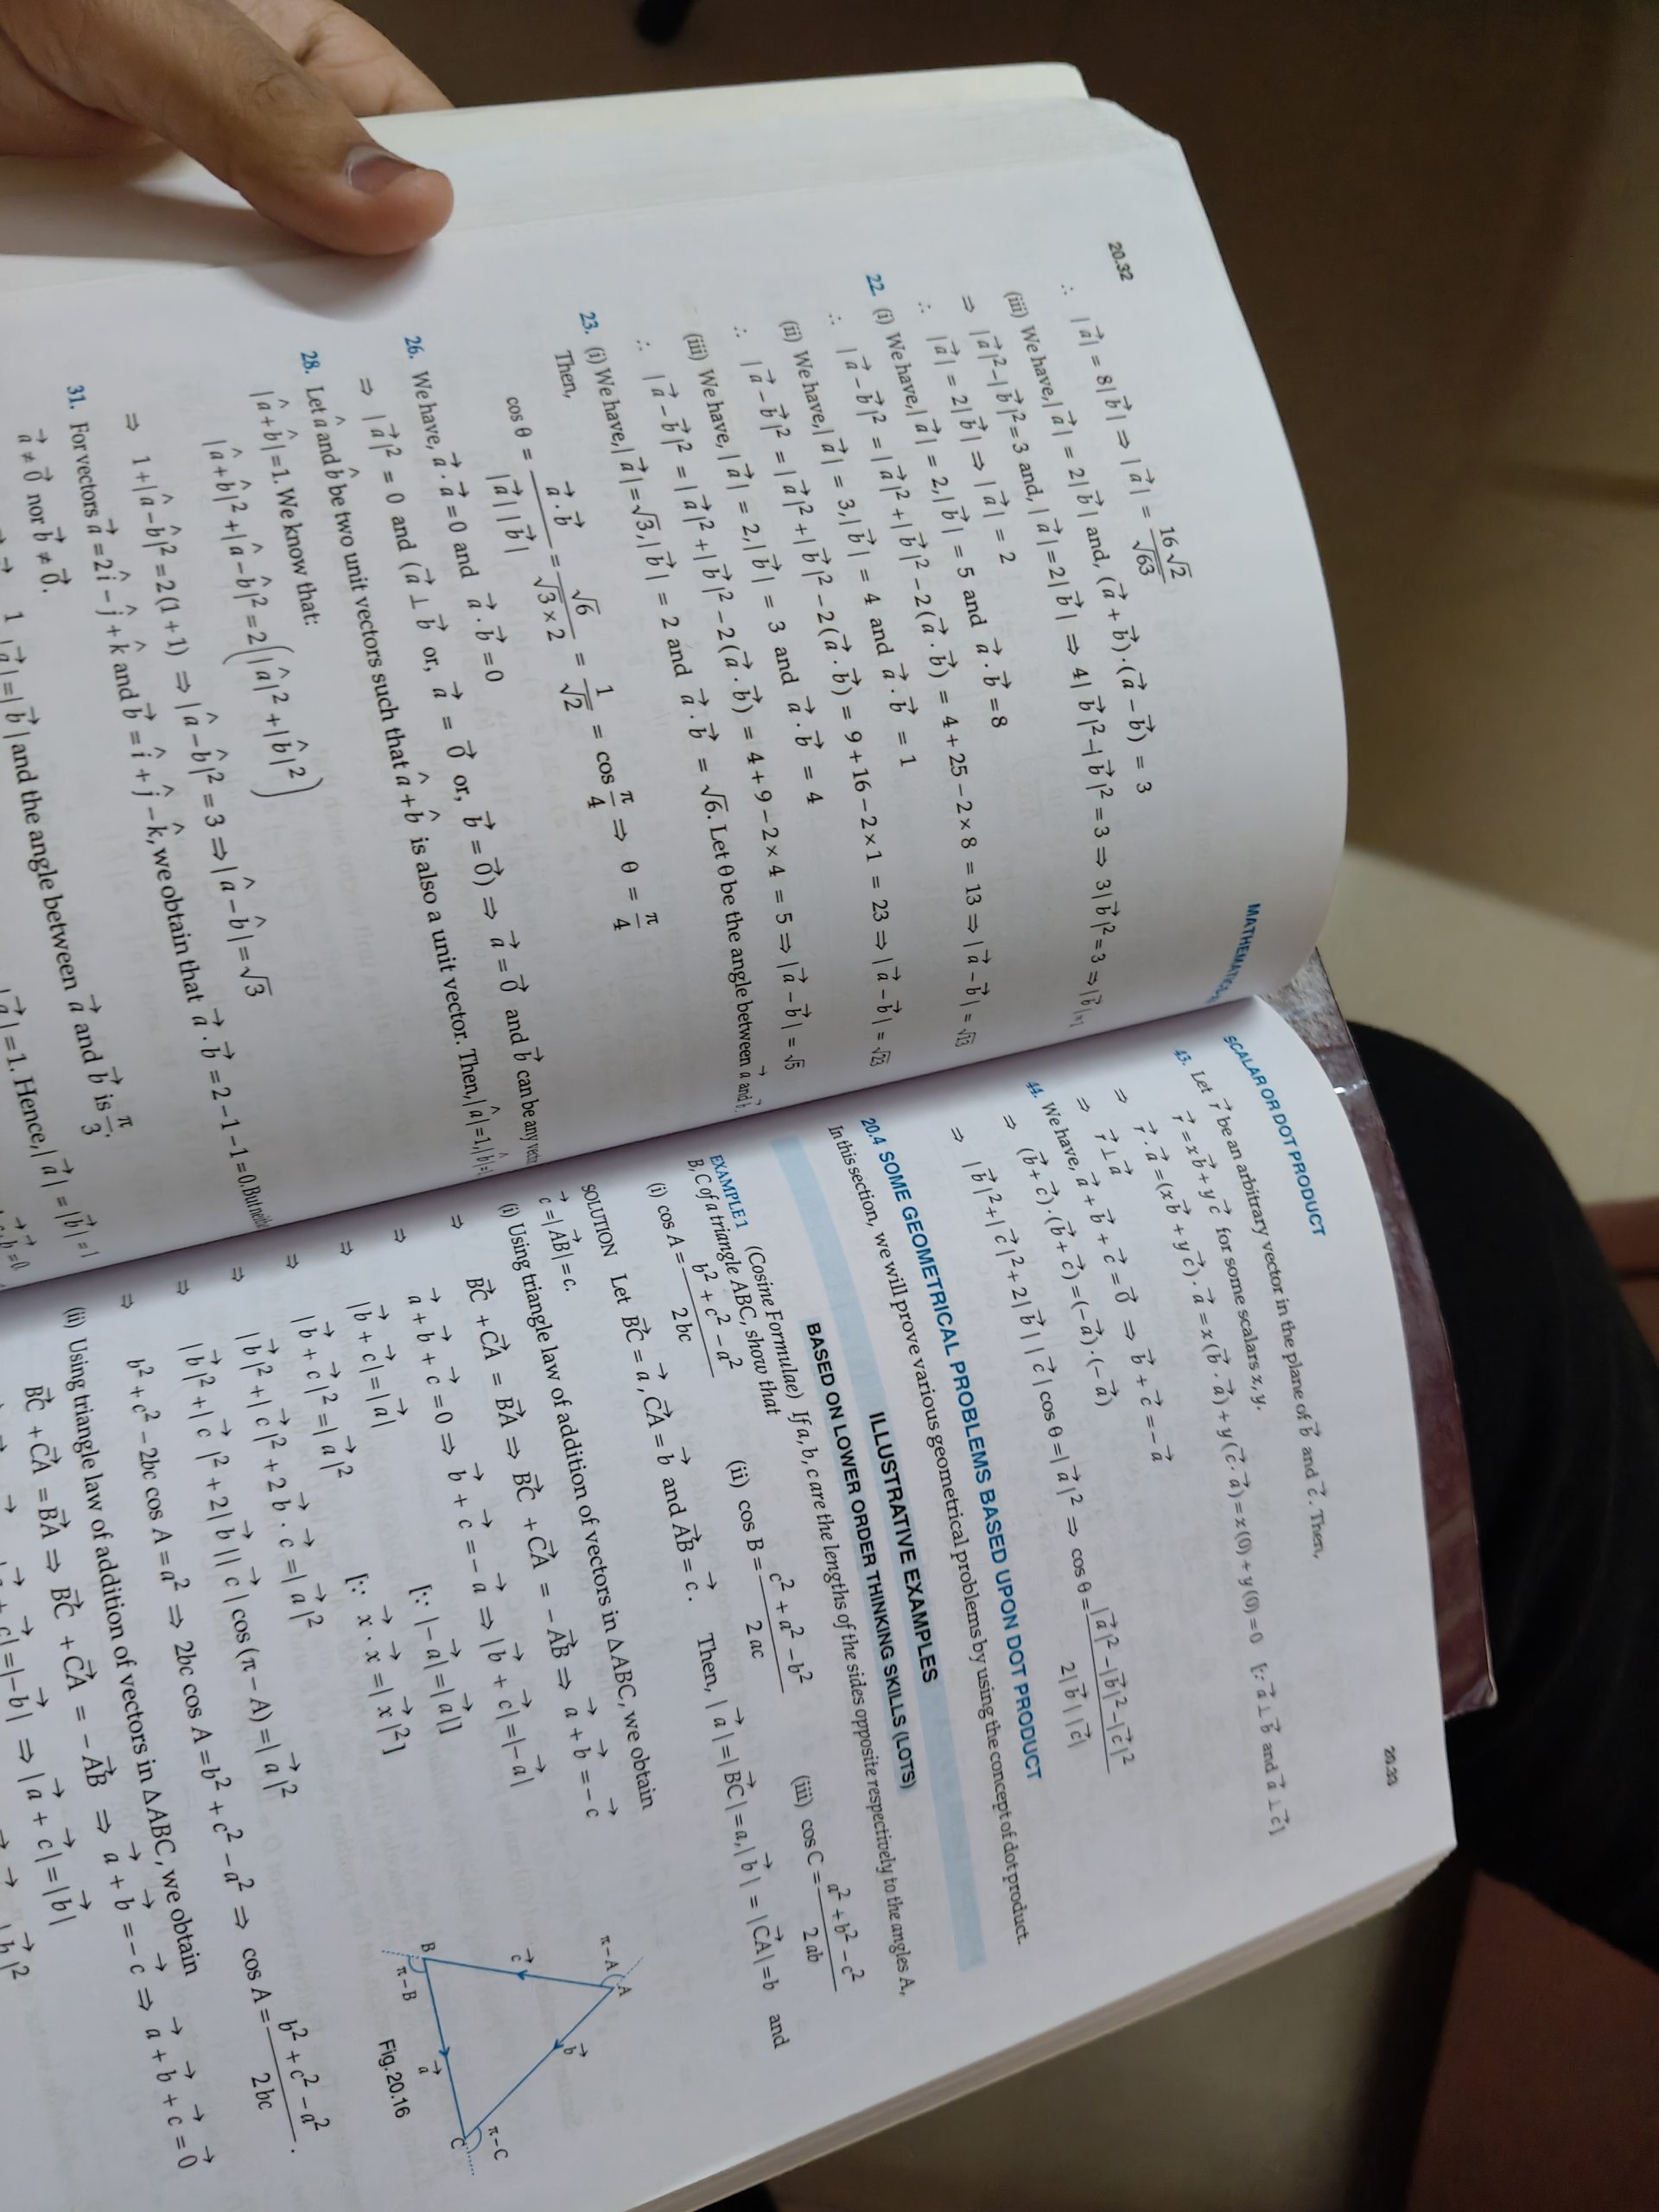 20.32
MATHEMATICS
∴ |a⃗| = 8|b⃗| ⇒ |a⃗| = 16√2/√63
(iii) We have, |a⃗| = 2|b⃗| and, (a⃗ + b⃗)·(a⃗ − b⃗) = 3
⇒ |a⃗|² − |b⃗|² = 3 and, |a⃗| = 2|b⃗| ⇒ 4|b⃗|² − |b⃗|² = 3 ⇒ 3|b⃗|² = 3 ⇒ |b⃗| = 1
∴ |a⃗| = 2|b⃗| ⇒ |a⃗| = 2
22. (i) We have, |a⃗| = 2, |b⃗| = 5 and a⃗·b⃗ = 8
∴ |a⃗ − b⃗|² = |a⃗|² + |b⃗|² − 2(a⃗·b⃗) = 4 + 25 − 2 × 8 = 13 ⇒ |a⃗ − b⃗| = √13
(ii) We have, |a⃗| = 3, |b⃗| = 4 and a⃗·b⃗ = 1
∴ |a⃗ − b⃗|² = |a⃗|² + |b⃗|² − 2(a⃗·b⃗) = 9 + 16 − 2 × 1 = 23 ⇒ |a⃗ − b⃗| = √23
(iii) We have, |a⃗| = 2, |b⃗| = 3 and a⃗·b⃗ = 4
∴ |a⃗ − b⃗|² = |a⃗|² + |b⃗|² − 2(a⃗·b⃗) = 4 + 9 − 2 × 4 = 5 ⇒ |a⃗ − b⃗| = √5
23. (i) We have, |a⃗| = √3, |b⃗| = 2 and a⃗·b⃗ = √6. Let θ be the angle between a⃗ and b⃗.
Then,
cos θ = a⃗·b⃗/|a⃗||b⃗| = √6/√3 × 2 = 1/√2 = cos π/4 ⇒ θ = π/4
26. We have, a⃗·a⃗ = 0 and a⃗·b⃗ = 0
⇒ |a⃗|² = 0 and (a⃗ ⊥ b⃗ or, a⃗ = 0⃗ or, b⃗ = 0⃗) ⇒ a⃗ = 0⃗ and b⃗ can be any
28. Let â and b̂ be two unit vectors such that â + b̂ is also a unit vector. Then, |â| = 1, |b̂| = 1
|â + b̂| = 1. We know that:
|â + b̂|² + |â − b̂|² = 2(|â|² + |b̂|²)
⇒ 1 + |â − b̂|² = 2(1 + 1) ⇒ |â − b̂|² = 3 ⇒ |â − b̂| = √3
31. For vectors a⃗ = 2î − ĵ + k̂ and b⃗ = î + ĵ − k̂, we obtain that a⃗·b⃗ = 2 − 1 − 1 = 0. But
a⃗ ≠ 0⃗ nor b⃗ ≠ 0⃗.
|a⃗| = |b⃗| and the angle between a⃗ and b⃗ is π/3.
|a⃗| = 1. Hence, |a⃗| = |b⃗| = 1
SCALAR OR DOT PRODUCT
20.33
43. Let r⃗ be an arbitrary vector in the plane of b⃗ and c⃗. Then,
r⃗ = xb⃗ + yc⃗ for some scalars x, y.
⇒ r⃗·a⃗ = (xb⃗ + yc⃗)·a⃗ = x(b⃗·a⃗) + y(c⃗·a⃗) = x(0) + y(0) = 0 [∵ a⃗ ⊥ b⃗ and a⃗ ⊥ c⃗]
⇒ r⃗ ⊥ a⃗
44. We have, a⃗ + b⃗ + c⃗ = 0⃗ ⇒ b⃗ + c⃗ = −a⃗
⇒ (b⃗ + c⃗)·(b⃗ + c⃗) = (−a⃗)·(−a⃗)
⇒ |b⃗|² + |c⃗|² + 2|b⃗||c⃗| cos θ = |a⃗|² ⇒ cos θ = |a⃗|² − |b⃗|² − |c⃗|²/2|b⃗||c⃗|
20.4 SOME GEOMETRICAL PROBLEMS BASED UPON DOT PRODUCT
In this section, we will prove various geometrical problems by using the concept of dot product.
ILLUSTRATIVE EXAMPLES
BASED ON LOWER ORDER THINKING SKILLS (LOTS)
EXAMPLE 1 (Cosine Formulae) If a, b, c are the lengths of the sides opposite respectively to the angles A,
B, C of a triangle ABC, show that
(i) cos A = b² + c² − a²/2bc (ii) cos B = c² + a² − b²/2ac (iii) cos C = a² + b² − c²/2ab
SOLUTION Let BC⃗ = a⃗, CA⃗ = b⃗ and AB⃗ = c⃗. Then, |a⃗| = |BC⃗| = a, |b⃗| = |CA⃗| = b and
c⃗ = |AB⃗| = c.
(i) Using triangle law of addition of vectors in ΔABC, we obtain
BC⃗ + CA⃗ = BA⃗ ⇒ BC⃗ + CA⃗ = −AB⃗ ⇒ a⃗ + b⃗ = −c⃗
⇒ a⃗ + b⃗ + c⃗ = 0 ⇒ b⃗ + c⃗ = −a⃗ ⇒ |b⃗ + c⃗| = |−a⃗|
⇒ |b⃗ + c⃗| = |a⃗| [∵ |−a⃗| = |a⃗|]
⇒ |b⃗ + c⃗|² = |a⃗|² [∵ x⃗·x⃗ = |x⃗|²]
⇒ |b⃗|² + |c⃗|² + 2b⃗·c⃗ = |a⃗|²
⇒ |b⃗|² + |c⃗|² + 2|b⃗||c⃗| cos (π − A) = |a⃗|²
⇒ b² + c² − 2bc cos A = a² ⇒ 2bc cos A = b² + c² − a² ⇒ cos A = b² + c² − a²/2bc.
(ii) Using triangle law of addition of vectors in ΔABC, we obtain
BC⃗ + CA⃗ = BA⃗ ⇒ BC⃗ + CA⃗ = −AB⃗ ⇒ a⃗ + b⃗ = −c⃗ ⇒ a⃗ + b⃗ + c⃗ = 0⃗
c⃗| = |−b⃗| ⇒ |a⃗ + c⃗| = |b⃗|
π − A
A
c⃗
b⃗
B
π − B
a⃗
C
π − C
Fig. 20.16